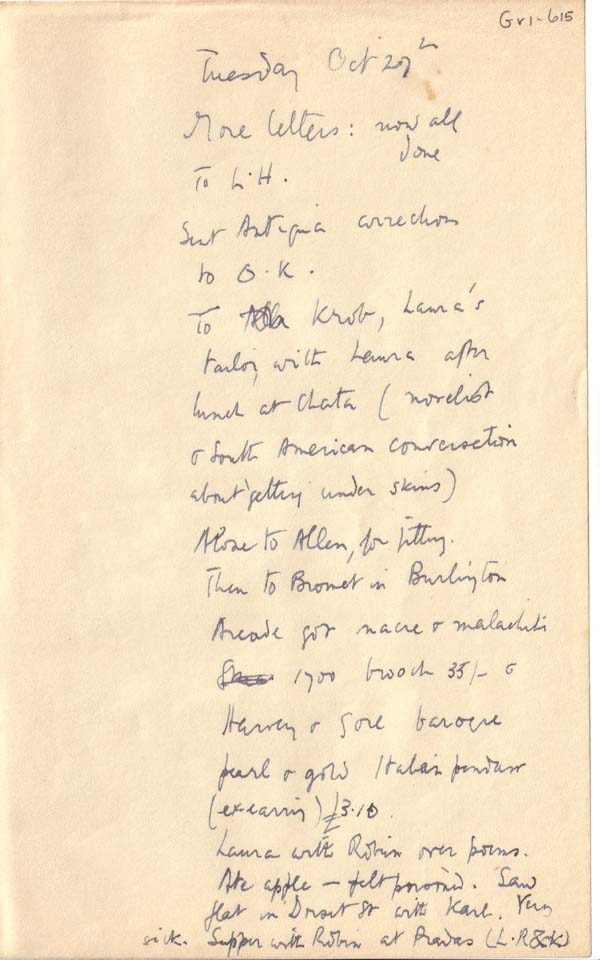 Gr1-615
Tuesday Oct 27
More letters: now all
done
To L.H.
Sent Antigua corrections
to O.K.
To Krob, Laura's
tailor, with Laura after
lunch at Chata (novelist
& South American conversation
about 'getting under skins)
Alone to Allen, for fitting.
Then to Bromet in Burlington
Arcade got nacre & malachite
1700 brooch 35/- &
Harvey & Gore baroque
pearl & gold Italian pendant
(ex-earring) £3.10.
Laura with Robin over poems.
Ate apple — felt poisoned. Saw
flat in Dorset St with Karl. Very
sick. Supper with Robin at Pradas (L.R&K)